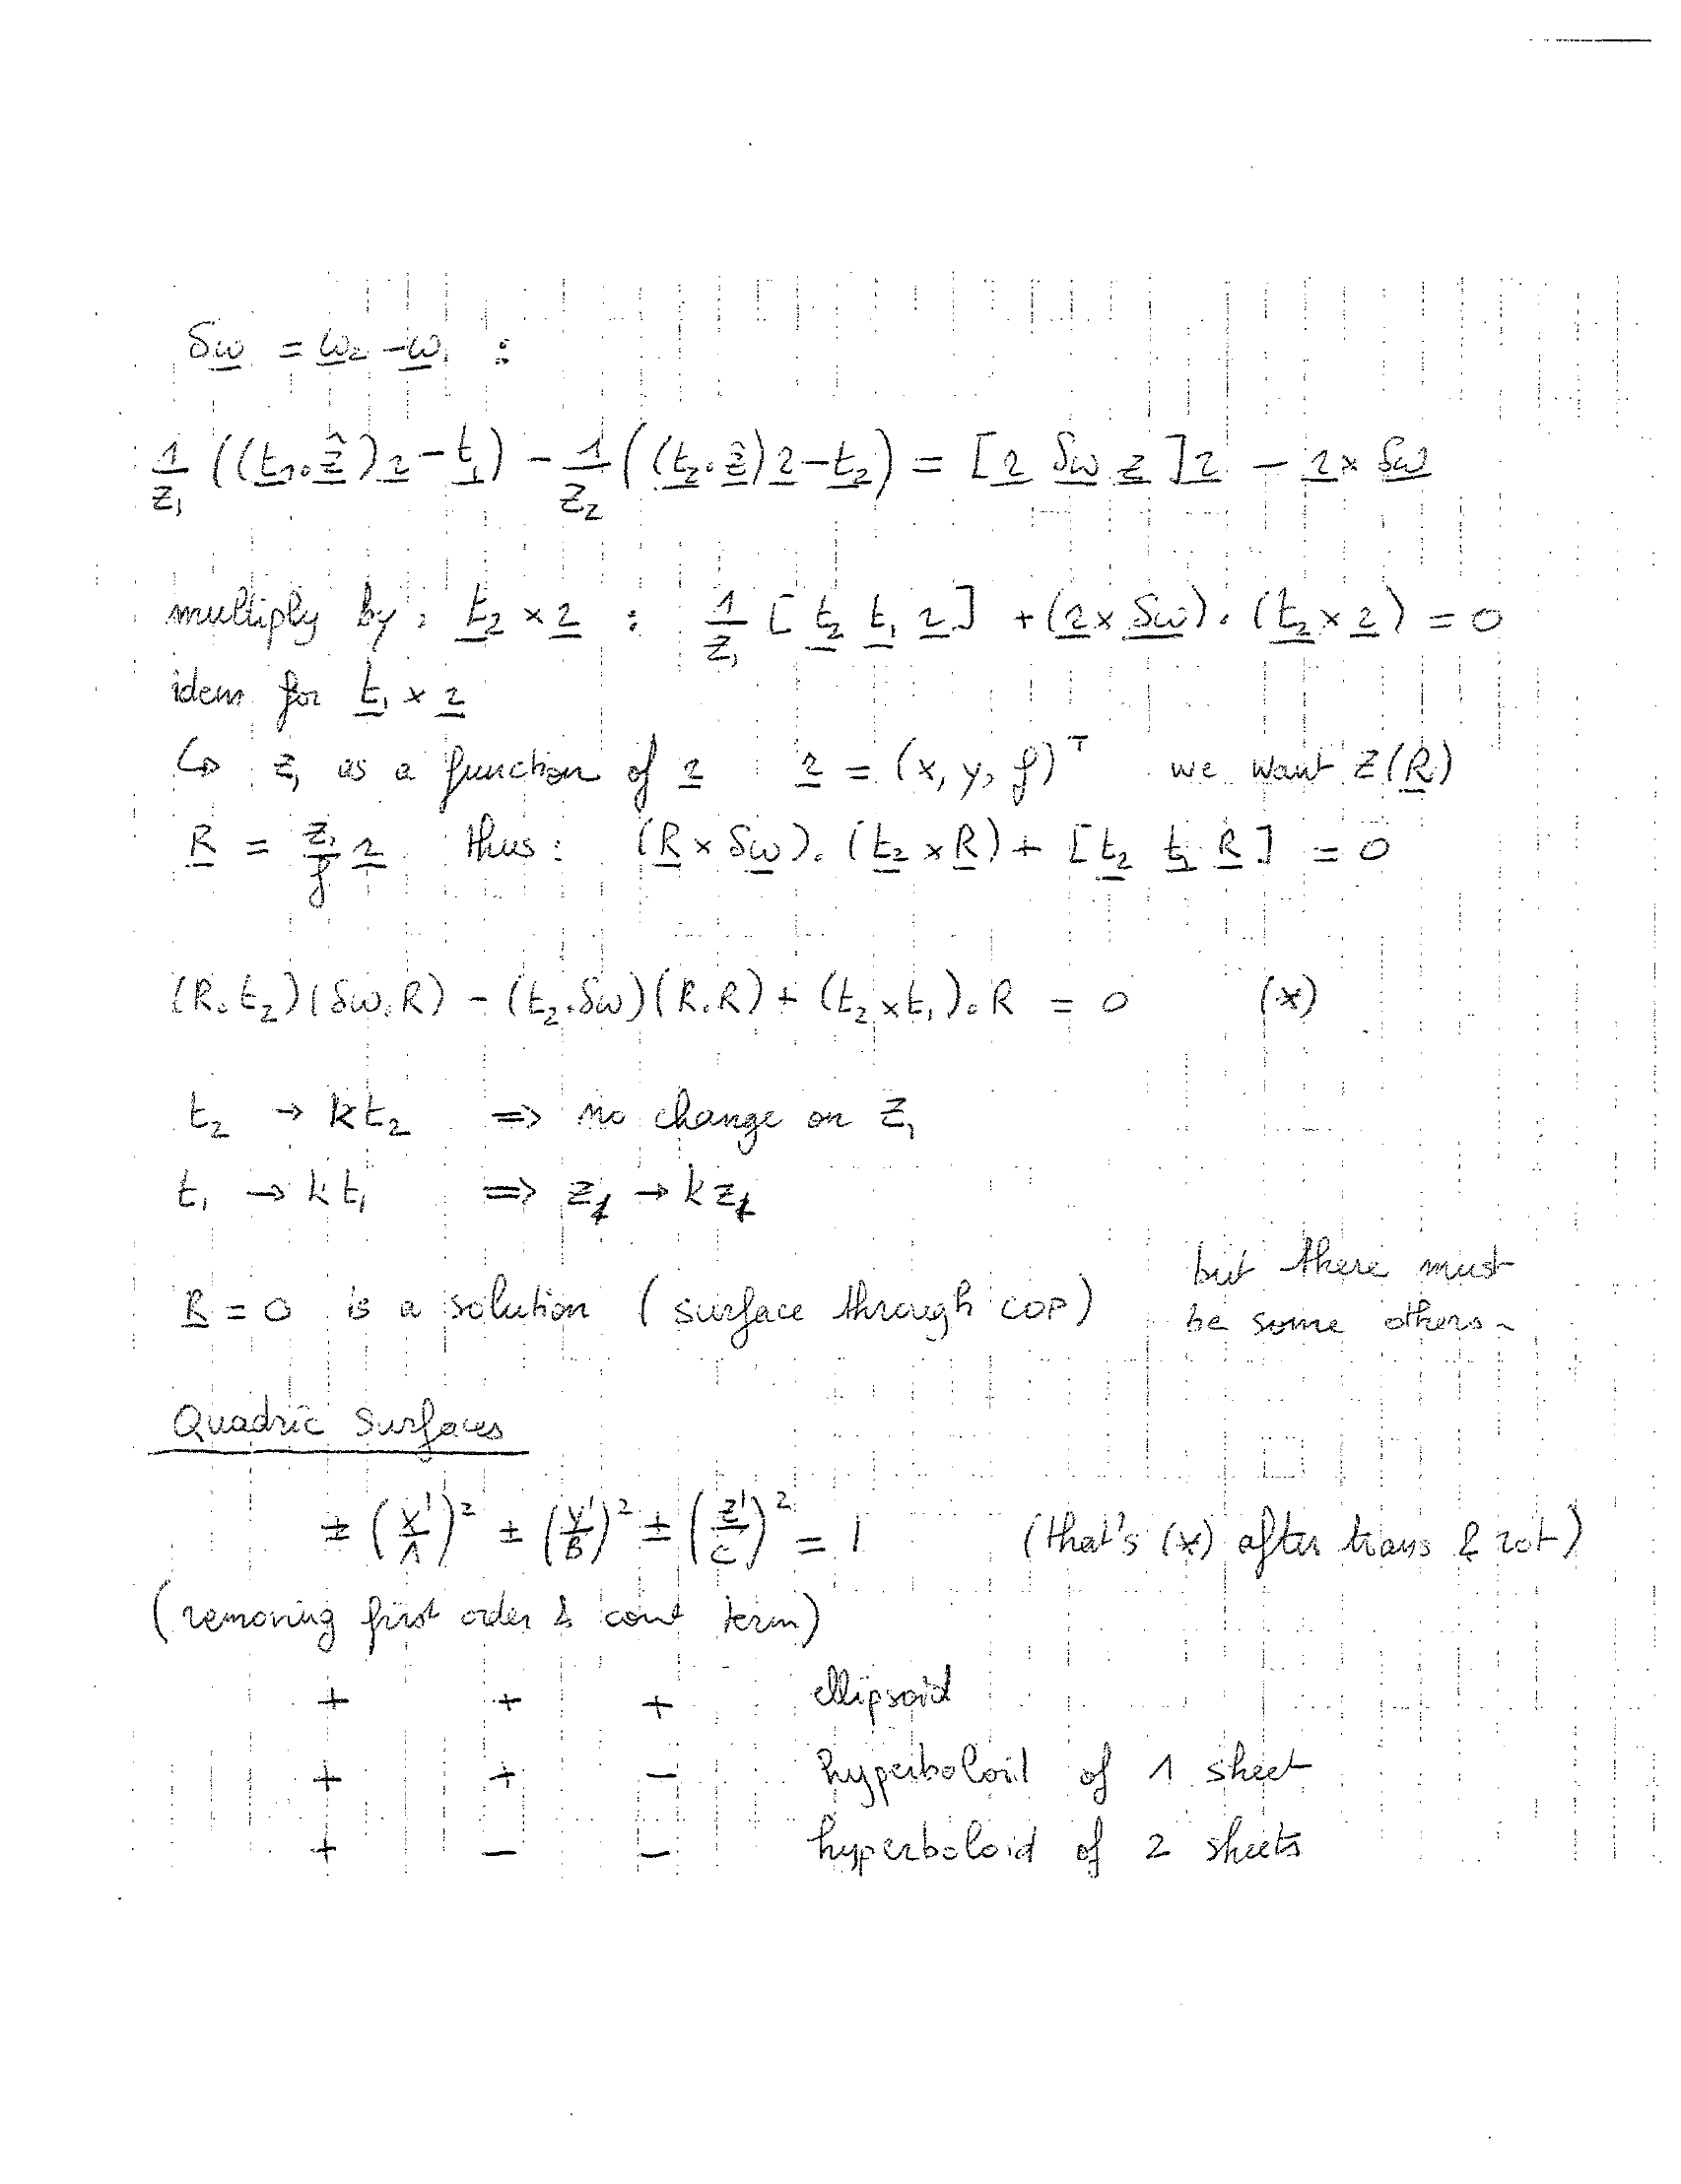 δω = ω₂ - ω₁ :
1/Z₁ ((t₁·ẑ)r - t₁) - 1/Z₂ ((t₂·ẑ)r - t₂) = [r δω z]r - r × δω
multiply by, t₂ × r : 1/Z₁ [t₂ t₁ r] + (r × δω)·(t₂ × r) = 0
idem for t₁ × r
↪ z₁ as a function of r r = (x, y, f)ᵀ we want Z(R)
R = Z₁/f r thus: (R × δω)·(t₂ × R) + [t₂ t₁ R] = 0
(R·t₂)(δω·R) - (t₂·δω)(R·R) + (t₂ × t₁)·R = 0 (*)
t₂ → kt₂ => no change on Z₁
t₁ → kt₁ => z₁ → kz₁
R = 0 is a solution (surface through COP) but there must
be some others
Quadric Surfaces
± (X'/A)² ± (Y'/B)² ± (Z'/C)² = 1 (that's (*) after trans & rot)
(removing first order & cont term)
+ + + ellipsoid
+ + - hyperboloid of 1 sheet
+ - - hyperboloid of 2 sheets